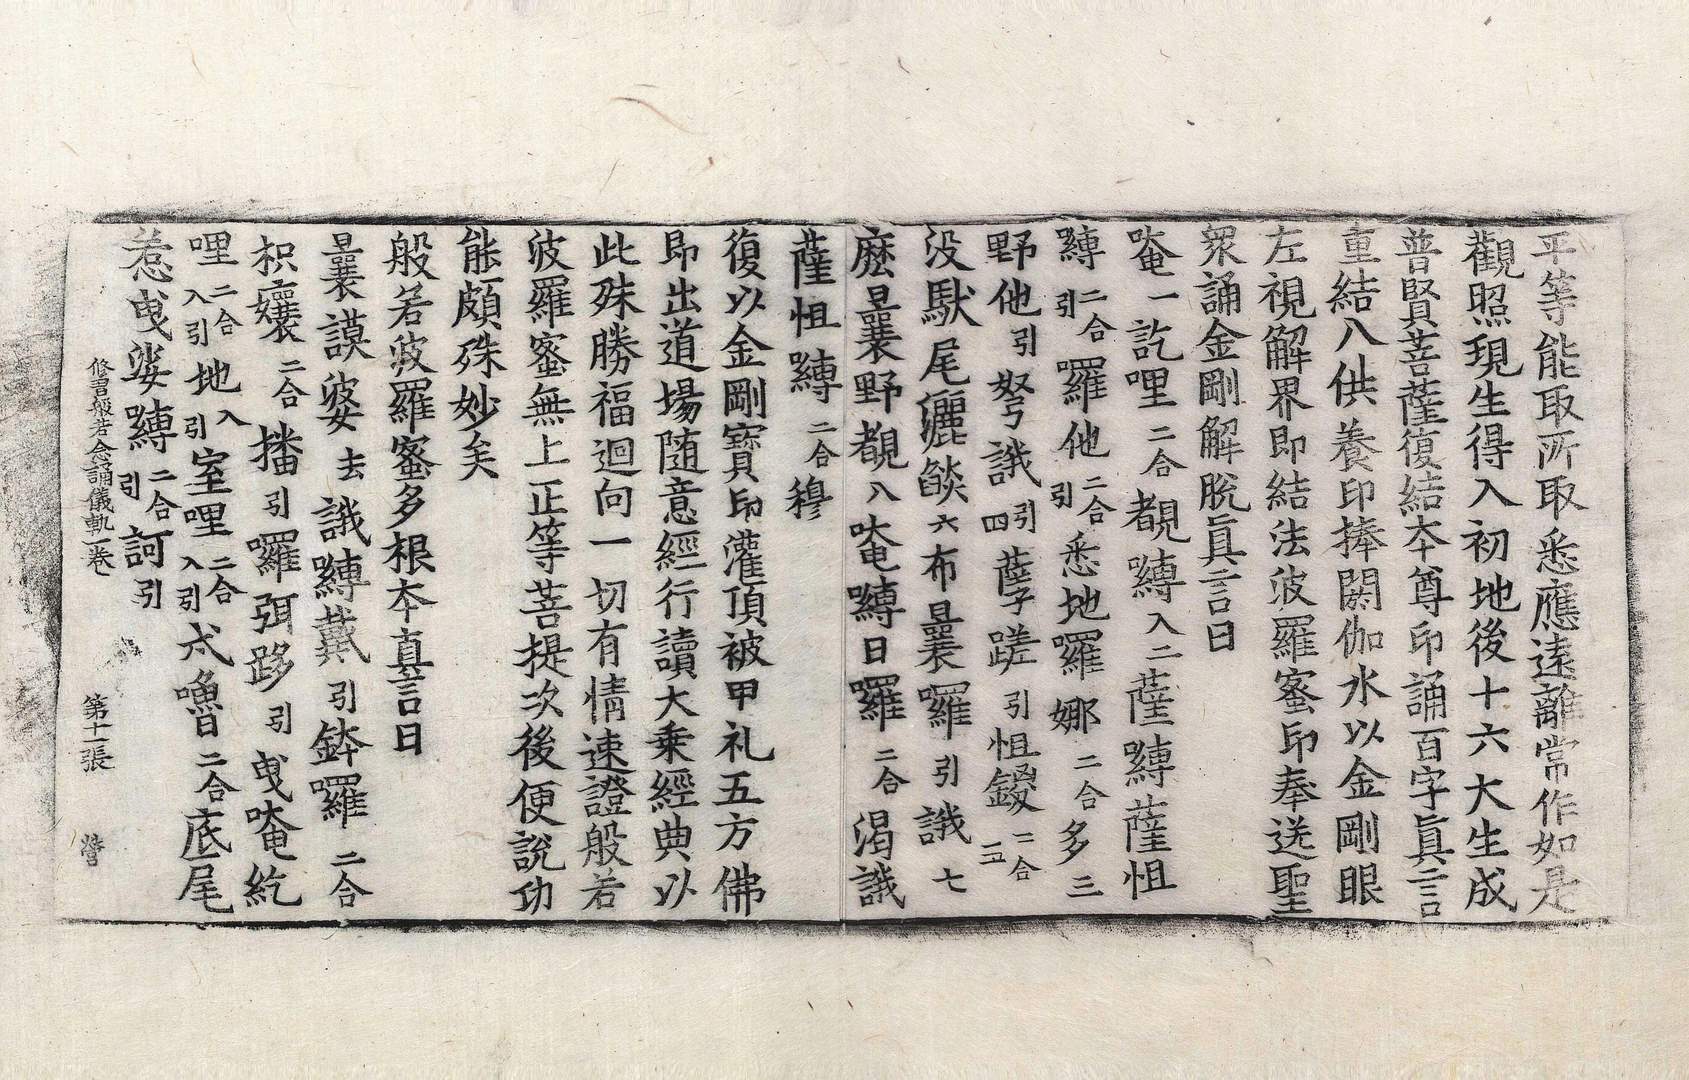 平等能取所取悉應遠離常作如是
觀照現生得入初地後十六大生成
普賢菩薩復結本尊印誦百字眞言
重結八供養印捧閼伽水以金剛眼
左視解界即結法波羅蜜印奉送聖
衆誦金剛解脫眞言曰
唵一訖哩二合覩嚩入二薩嚩薩怛
嚩二合引羅他二合引悉地囉娜二合多三
野他引弩誐引四孽蹉引怛鑁二合五
没馱尾灑燄六布曩囉引誐七
麽曩野覩八唵嚩日囉二合渴誐
薩怛嚩二合穆
復以金剛寶印灌頂被甲礼五方佛
即出道場随意經行讀大乘經典以
此殊勝福迴向一切有情速證般若
波羅蜜無上正等菩提次後便說功
能頗殊妙矣
般若波羅蜜多根本真言曰
曩謨婆去誐嚩戴引鉢囉二合
枳孃二合播引囉弭跢引曳唵紇
哩二合入引地入引室哩二合入引戍嚕二合底尾
惹曳娑嚩二合引訶引
修習般若念誦儀軌一卷 第十一張 營